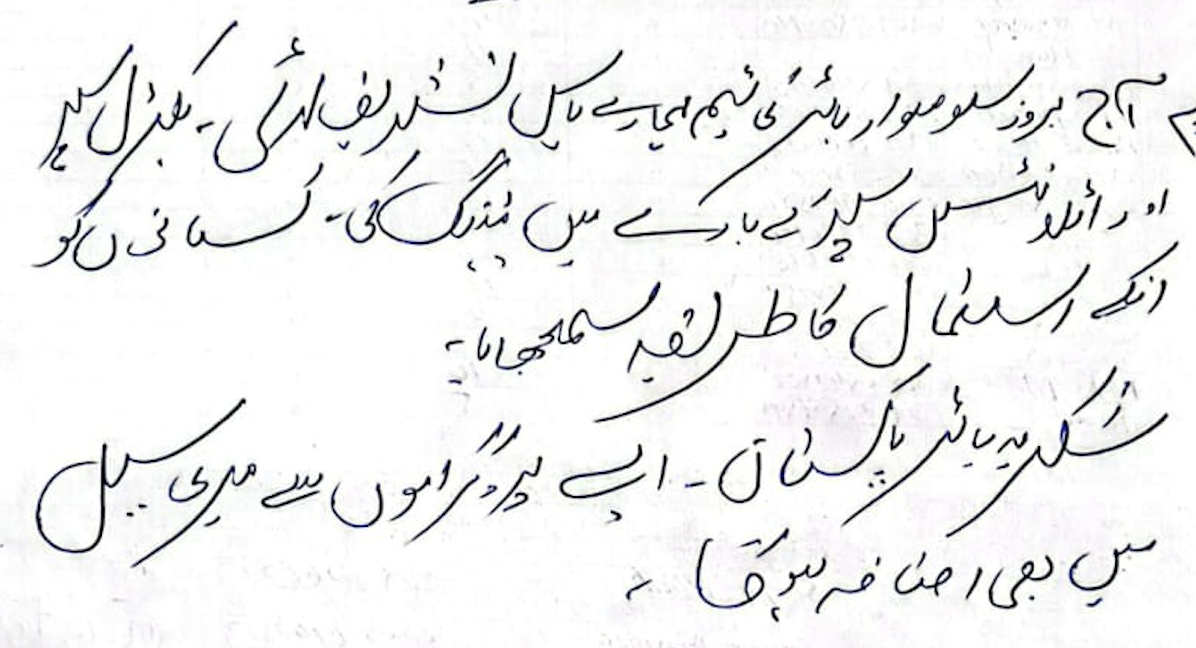 آج بروز سوموار بائر کی ٹیم ہمارے پاس تشریف لائی۔ سپر
اور سپر کے بارے میں میٹنگ کی۔ کسانوں کو
انکے استعمال کا طریقہ سمجھایا۔
شکریہ بائر پاکستان۔ ایسے پروگراموں سے میری سیل
میں بھی اضافہ ہوگا۔